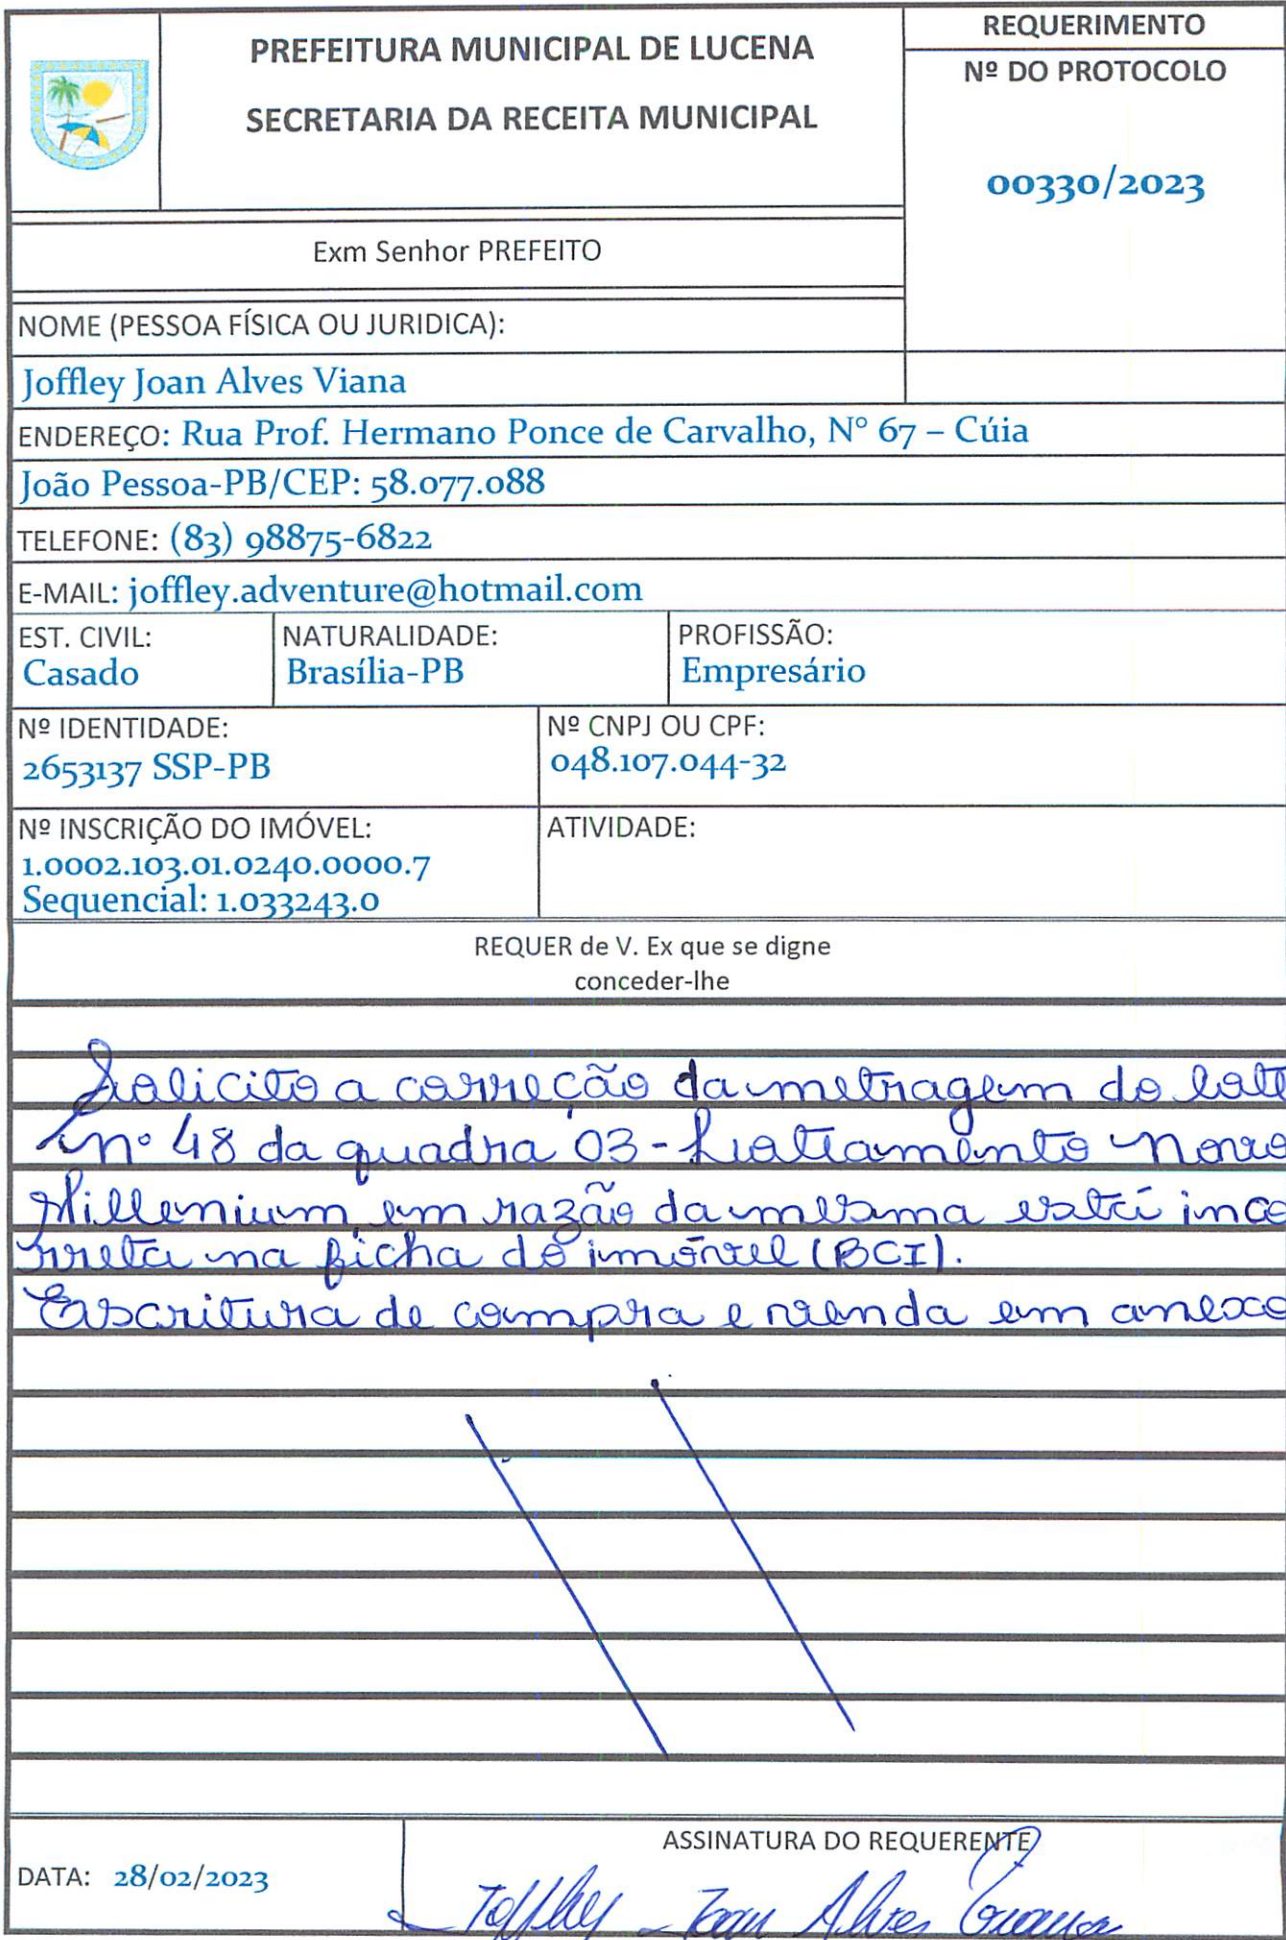 PREFEITURA MUNICIPAL DE LUCENA
SECRETARIA DA RECEITA MUNICIPAL
REQUERIMENTO
Nº DO PROTOCOLO
00330/2023
Exm Senhor PREFEITO
NOME (PESSOA FÍSICA OU JURIDICA):
Joffley Joan Alves Viana
ENDEREÇO: Rua Prof. Hermano Ponce de Carvalho, N° 67 – Cúia
João Pessoa-PB/CEP: 58.077.088
TELEFONE: (83) 98875-6822
E-MAIL: joffley.adventure@hotmail.com
EST. CIVIL:
Casado
NATURALIDADE:
Brasília-PB
PROFISSÃO:
Empresário
Nº IDENTIDADE:
2653137 SSP-PB
Nº CNPJ OU CPF:
048.107.044-32
Nº INSCRIÇÃO DO IMÓVEL:
1.0002.103.01.0240.0000.7
Sequencial: 1.033243.0
ATIVIDADE:
REQUER de V. Ex que se digne
conceder-lhe
Solicito a correção da metragem do lote
nº 48 da quadra 03 - Loteamento Novo
Millenium, em razão da mesma está inco
rreta na ficha do imóvel (BCI).
Escritura de compra e venda em anexo
DATA: 28/02/2023
ASSINATURA DO REQUERENTE
Joffley Joan Alves Viana